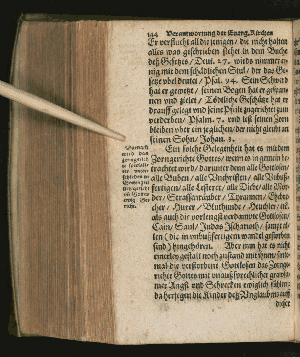 144 Verantwortung der Evang. Kirchen
Er verflucht alle die jenigen / die nicht halten
alles was geschrieben stehet in dem Buche
deß Gesetzes / Deut. 27. wirds nimmer ei-
nig mit dem schädlichen Stul / der das Ge-
setze übel deutet / Psal. 94. Sein Schwerd
hat er gewetzt / seinen Bogen hat er gespan-
nen und zielet / Tödtliche Geschütz hat er
drauff gelegt und seine Pfeile zugerichtet zum
verderben / Psalm. 7. und läst seinen Zorn
bleiben über ein jeglichen / der nicht gleubt an
seinen Sohn / Johan. 3.
Ein solche Gelegenheit hat es mit dem
Zorngerichte Gottes / wenn es in gemein be-
trachtet wird / darunter denn alle Gottlosen
alle Buben / alle
fertigen / alle Lesterer / alle Diebe / alle Mör-
der / Strassenräuber / Tyrannen / Ehebre-
cher / Hurer / Bluthunde / Heuchler / etc.
als auch die vorlengst verdamte Gottlosen /
Cain / Saul / Judas Ischarioth /
len (die in unbußfertigem wandel gestorben
sind) hingehören. Aber nun hat es nicht
einerley gestalt noch zustand mit ihnen / sinte-
mal die verstorbene Gottlosen das Zornge-
richte Gottes mit unaußsprechlicher grawsa-
mer Angst und Schrecken ewiglich fühlen:
da hergegen die Kinder deß Unglaubens auff
dieser